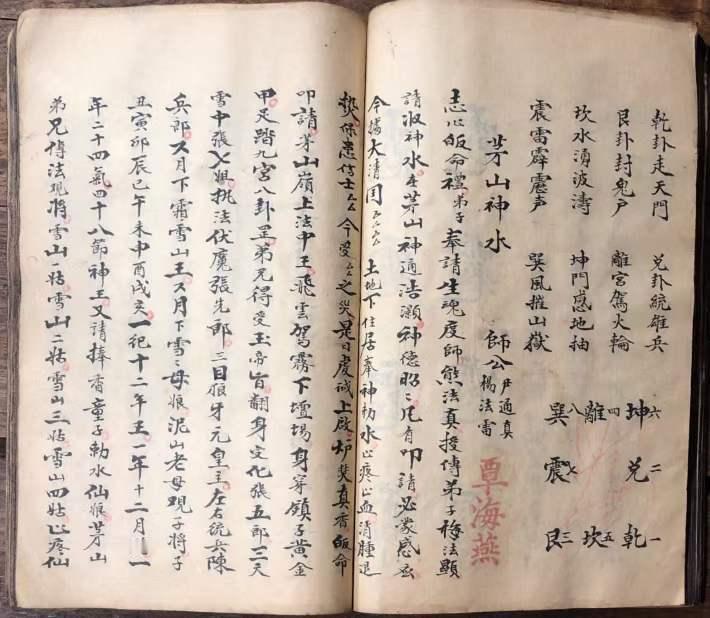 乾卦走天門 兌卦統雄兵
艮卦封鬼户 離宫駕火輪
坎水湧波濤 坤門惑地抽
震雷霹靂声 巽風摧山嶽
六坤 二兌 一乾
四離 五坎
八巽 七震 三艮
茅山神水 師公 尹通真 楊法雷
覃海燕
志心皈命禮弟子奉請生魂度師熊法真授傳弟子梅法顯
請淑神水在茅山神通浩瀬神德昭〻凡有叩請必蒙感
今據大清国 土地下住居奉神勅水止疼止血消腫退
信士厶厶今受厶厶之災是日虔诚上啟叩焚真香皈命
叩請茅山嶺上法中王飛雲駕霧下壇塲身穿領子黄金
甲足踏九宫八卦罡弟兄得受玉帝旨翻身变化張五郎三天
雪中張七姐执法伏魔張先郎三目狼牙元皇主左右统兵陳
兵郎六月下霜雪山王六月下雪〻母娘泥山老母現子將子
丑寅卯辰巳午未申酉戍亥一祀十二年王一年十二月一
年二十四氣四十八節神王又請捧香童子勅水仙娘茅山
弟兄傳法現將雪山一姑雪山二姑雪山三姑雪山四姑止疼仙